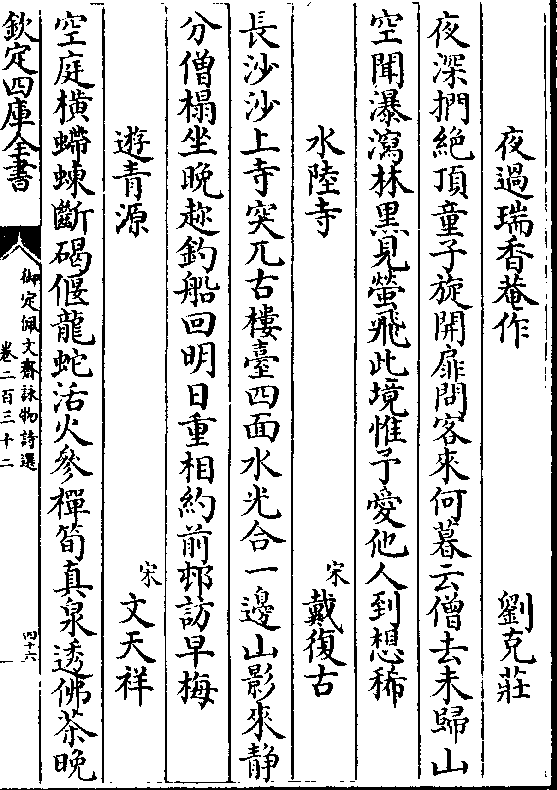 夜過瑞香菴作　劉克莊
夜深捫絶頂童子旋開扉問客來何暮云僧去未歸山
空聞瀑瀉林黒見螢飛此境惟予愛他人到想稀
水陸寺　宋　戴復古
長沙沙上寺突兀古樓臺四面水光合一邊山影來静
分僧榻坐晚趂釣船回明日重相約前邨訪早梅
遊青源　宋　文天祥
空庭橫螮蝀斷碣偃龍蛇活火參禪筍真泉透佛茶晚
欽定四庫全書
御定佩文齋詠物詩選
卷二百三十二
四十六